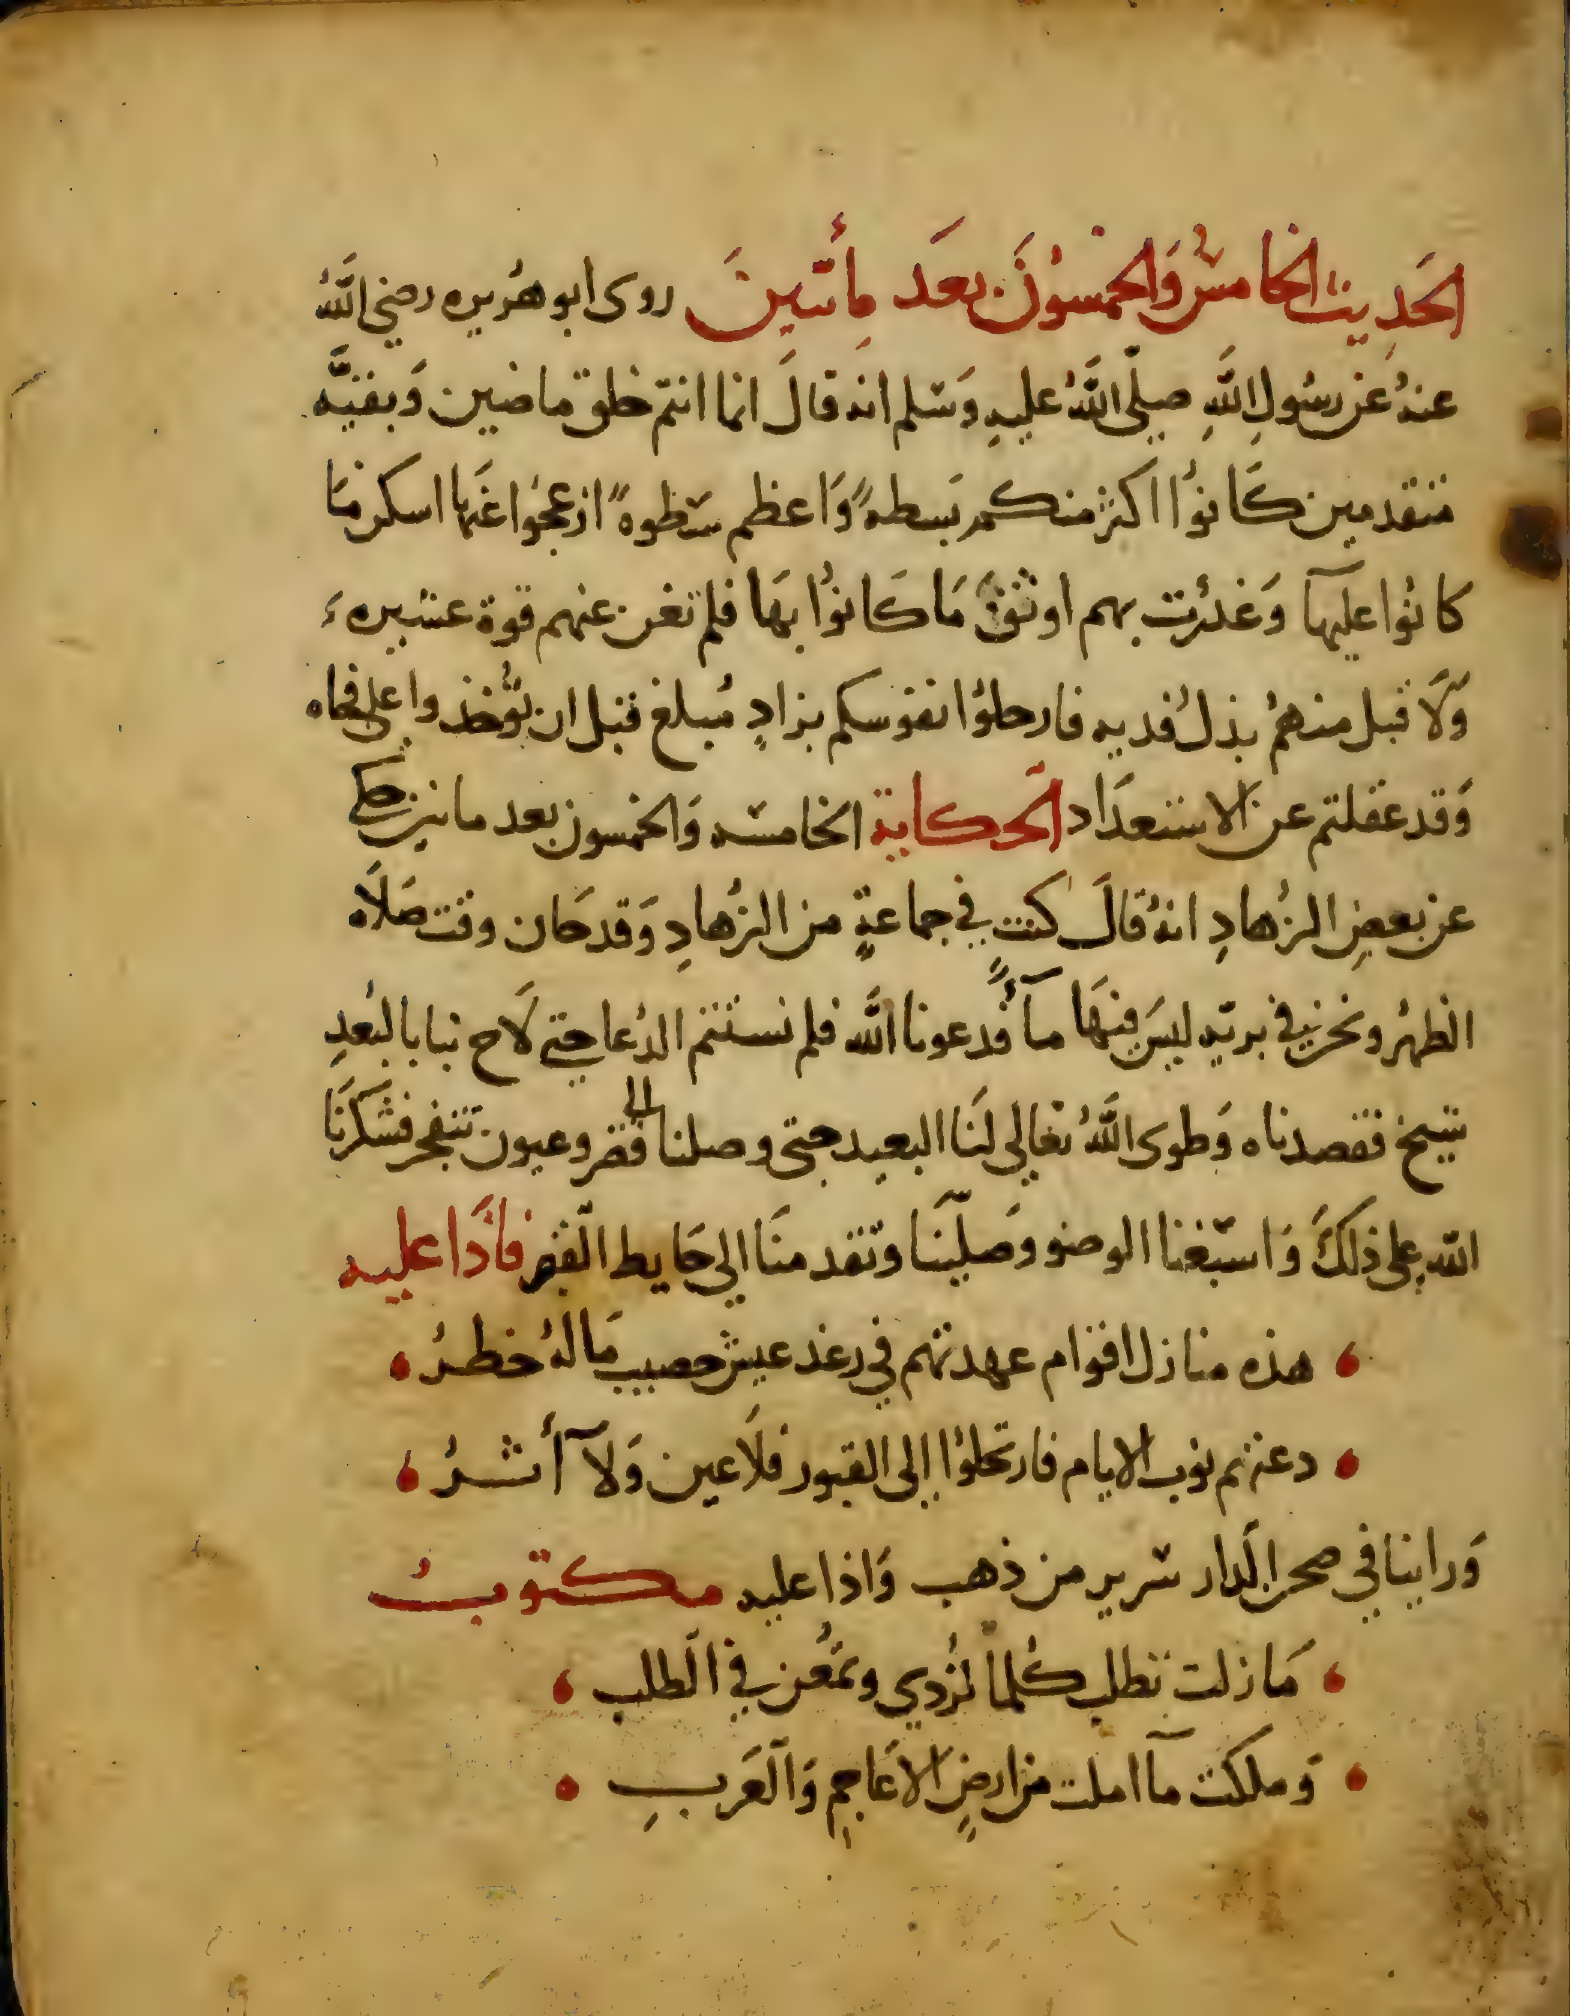 الحَدِيث الخامسُ وَالخمسُونَ بعدَ مِأتينَ روى ابو هُريره رضي اللَّهُ
عنهُ عن رسُولِ اللَّهِ صلّى اللَّهُ عليهِ وَسَلم انه قالَ انما انتم خلق ماضين وَبقيَّه
متقدمين كَانوُا اكثر منكم بَسطهً وَاعظم سَطوهً ازعجُوا عَنها اسكن مَا
كانوُا عليهآ وَغدرت بهم اوثقَ مَا كَانوُا بهَا فلم تغن عنهم قوة عشيره
وَلَا قبل منهمُ بذلُ فديه فارحلوُا نفوسكم بزادٍ مُبلغ قبل ان تُؤخذوا على فجاه
وَقد غفلتم عن الاستعدَاد الحكاية الخامسه وَالخمسون بعد ماتين حكي
عن بعضِ الزُهادِ انهُ قالَ كنت في جماعةٍ من الزُهادِ وَقد حَان وقت صَلَاه
الظهرُ ونحن في بريّه ليسَ فيهَا مآءً فدعونا اللَّه فلم نستتم الدُعا حتى لَاح لنا بالبُعدِ
شبح فقصدناه وَطوى اللَّهُ تعَالي لنَا البعيد حتى وصلنا الى قصر وعيون تتفجر فشكَرنَا
اللّه على ذلكَ وَاسبَغنا الوضو وَصَليّنَا وتقدمنَا الي حَايط القصر فاذَا عليه
هذه منازل اقوَام عهدتهم في رغد عيش خصيب مَا لهُ خطرُ
دعتهم نوب الايام فارتحلوُا إلى القبور فلَا عين وَلَآ أثرُ
وَراينا في صحن الدار سَرير من ذهب وَاذا عليه مكتوبُ
مَا زلت تطلب كُلما يُردي وتمُعن في الطلب
وَملكت مآ املت من ارضِ الاعَاجمِ وَالعَربِ